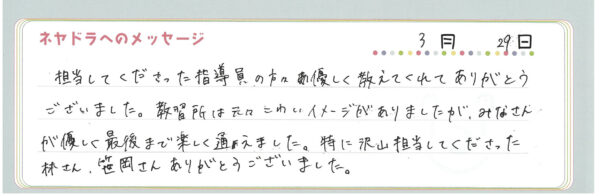 ネヤドラへのメッセージ
3月 29日
担当してくださった指導員の方々お優しく教えてくれてありがとう
ございました。教習所は元々こわいイメージがありましたが、みなさん
が優しく最後まで楽しく通えました。特に沢山担当してくださった
林さん、笹岡さんありがとうございました。